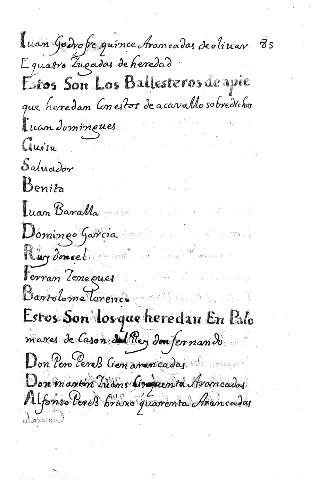 Iuan Godrofre quince Arancadas de oliuar 85
E quatro Iugadas de heredad
Estos Son Los Ballesteros de apie
que heredan Con estos de acavallo sobredichos
Iuan domingues
Guisu
Salvador
Benita
Iuan Baralla
Domingo Garcia
Ruy
Ferran Tenegues
Bartolome lorenco
Estos Son los que heredan En Palo
mares de Cason del Rey don fernando
Don Pero Peres Cien arancadas
Don martin Iuans Cinquenta Arancadas
Alfonso Peres bruno quarenta Arancadas